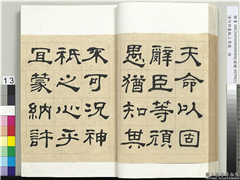 天命以固
辭臣等頑
愚猶知其
不可況神
祇之心乎
宜蒙納許
13